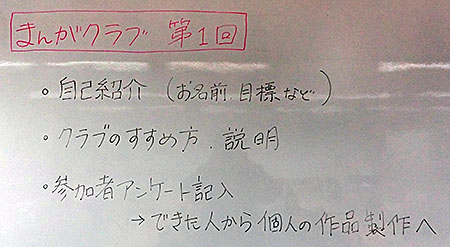 まんがクラブ 第1回
・自己紹介 (お名前.目標など)
・クラブのすすめ方.説明
・参加者アンケート記入
→できた人から個人の作品製作へ